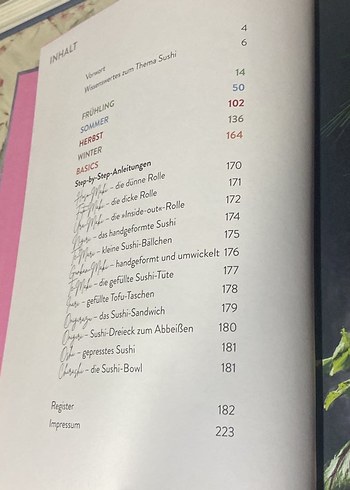 INHALT
Vorwort 4
Wissenswertes zum Thema Sushi 6
FRÜHLING 14
SOMMER 50
HERBST 102
WINTER 136
BASICS 164
Step-by-Step-Anleitungen 170
Hoso-Maki – die dünne Rolle 171
Futo-Maki – die dicke Rolle 172
Ura-Maki – die »Inside-out«-Rolle 174
Nigiri – das handgeformte Sushi 175
– kleine Sushi-Bällchen
Gunkan-Maki – handgeformt und umwickelt 176
Te-Maki – die gefüllte Sushi-Tüte 177
Inari – gefüllte Tofu-Taschen 178
Onigirazu – das Sushi-Sandwich 179
Onigiri – Sushi-Dreieck zum Abbeißen 180
Oshi – gepresstes Sushi 181
Chirashi – die Sushi-Bowl 181
Register 182
Impressum 223